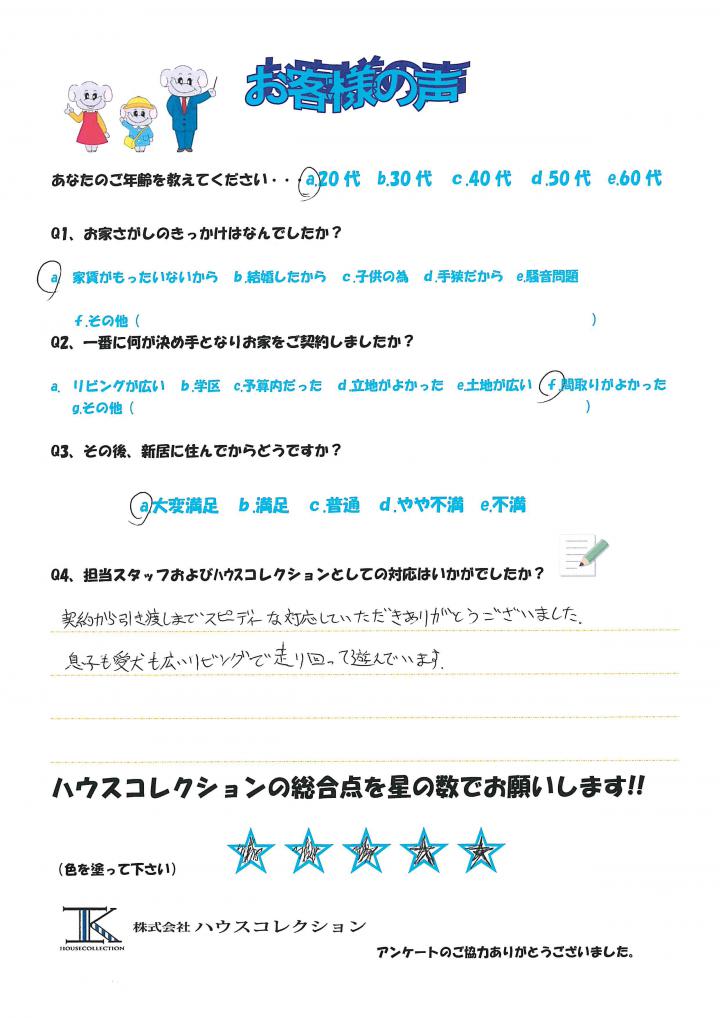 お客様の声
あなたのご年齢を教えてください・・・a.20代 b.30代 c.40代 d.50代 e.60代
Q1、お家さがしのきっかけはなんでしたか？
a 家賃がもったいないから b.結婚したから c.子供の為 d.手狭だから e.騒音問題
f.その他（ ）
Q2、一番に何が決め手となりお家をご契約しましたか？
a. リビングが広い b.学区 c.予算内だった d.立地がよかった e.土地が広い f.間取りがよかった
g.その他（ ）
Q3、その後、新居に住んでからどうですか？
a.大変満足 b.満足 c.普通 d.やや不満 e.不満
Q4、担当スタッフおよびﾊｳｽコレクションとしての対応はいかがでしたか？
契約から引き渡しまでスピディーな対応していただきありがとうございました。
息子も愛犬も広いリビングで走り回って遊んでいます。
ハウスコレクションの総合点を星の数でお願いします!!
（色を塗って下さい）
HOUSECOLLECTION 株式会社 ハウスコレクション
アンケートのご協力ありがとうございました。